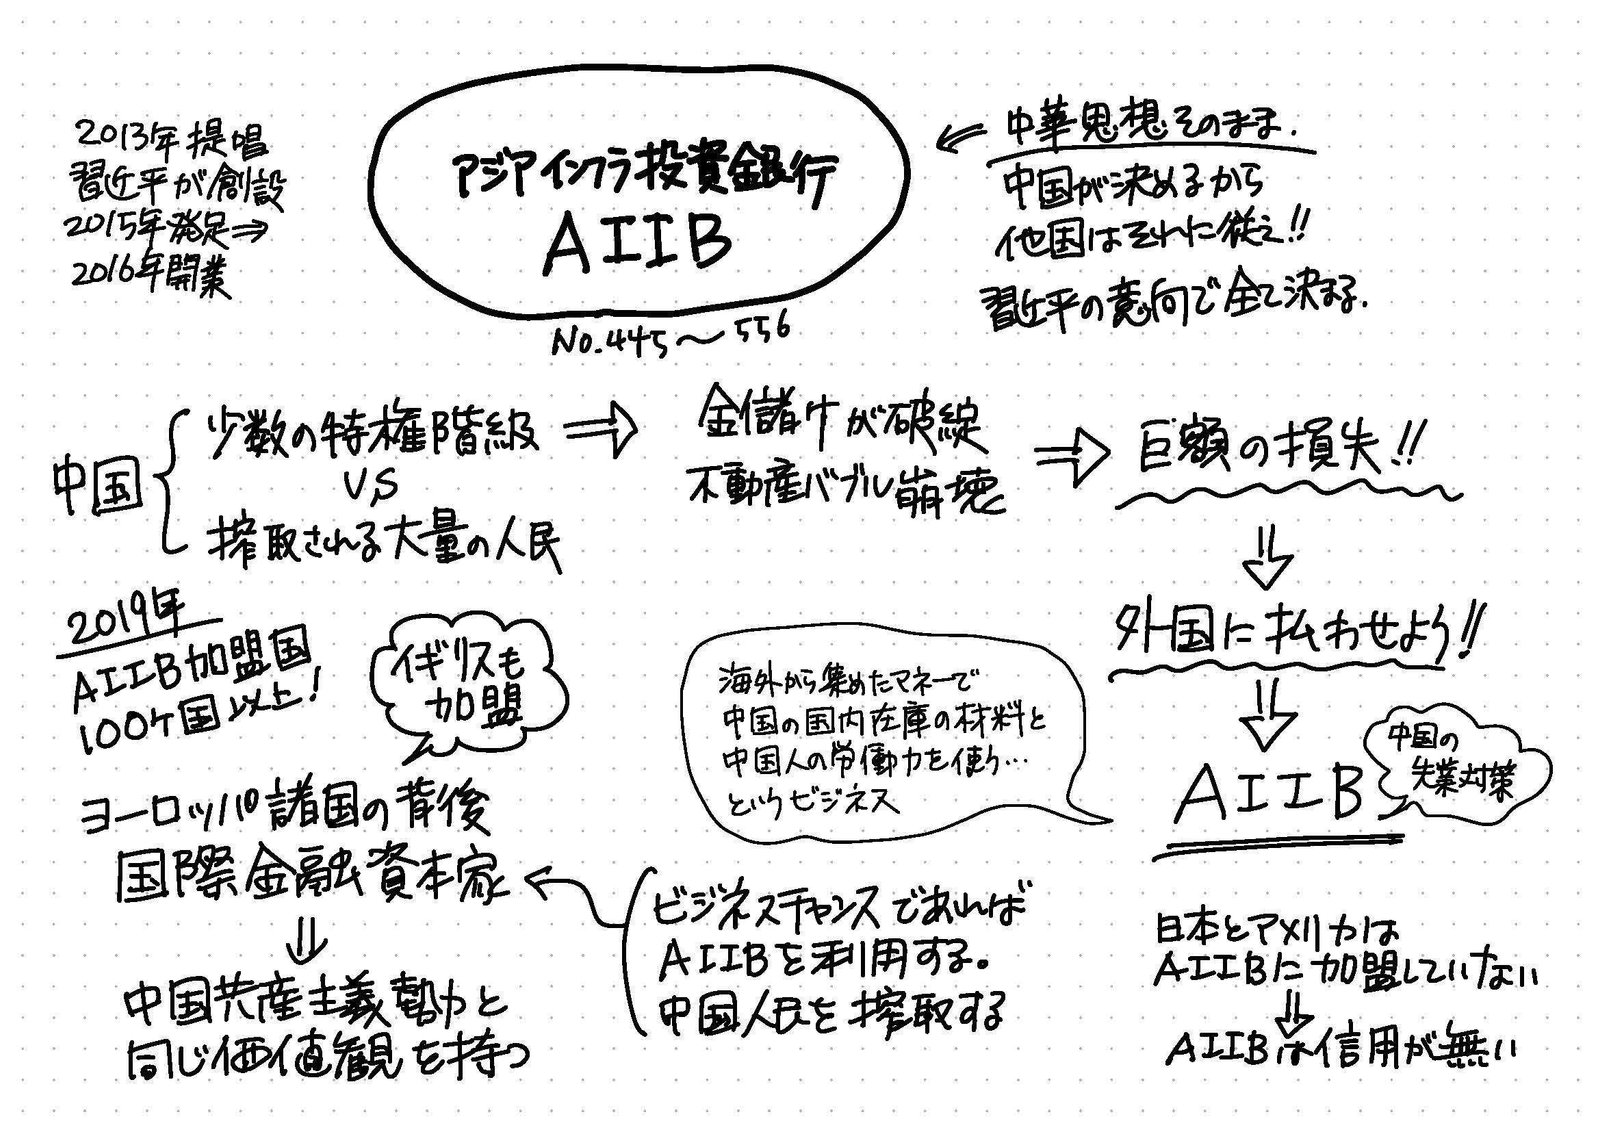 2013年提唱
習近平が創設
2015年発足⇒
2016年開業
アジアインフラ投資銀行
AIIB
No.445〜556
中華思想そのまま.
中国が決めるから
他国はそれに従え!!
習近平の意向で全て決まる.
中国
少数の特権階級
VS
搾取される大量の人民
金儲けが破綻
不動産バブル崩壊
巨額の損失!!
外国に払わせよう!!
AIIB
中国の
失業対策
海外から集めたマネーで
中国の国内在庫の材料と
中国人の労働力を使う…
というビジネス
2019年
AIIB加盟国
100ヶ国以上!
イギリスも
加盟
ヨーロッパ諸国の背後
国際金融資本家
中国共産主義勢力と
同じ価値観を持つ
ビジネスチャンスであれば
AIIBを利用する。
中国人民を搾取する
日本とアメリカは
AIIBに加盟していない
AIIBは信用が無い